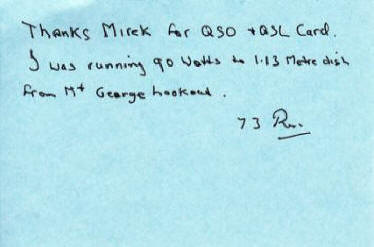 Thanks Mirek for QSO + QSL Card.
I was running 90 Watts to 1.13 Metre dish
from Mt George Lookout.
73